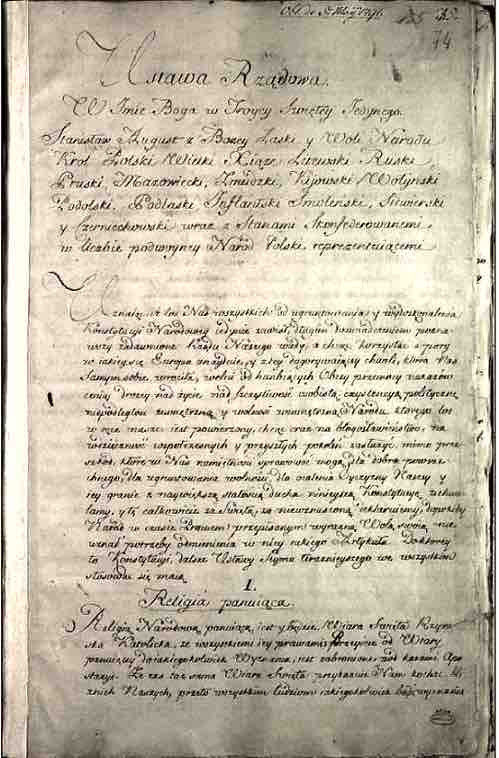 74
Ustawa Rządowa.
W Imie Boga w Troycy Swiętey Jedynego.
Stanisław August z Bożey Łaski y Woli Narodu
Krol Polski Wielki Xiąże Litewski Ruski
Pruski, Mazowiecki, Żmudzki, Kijowski Wołyński
Podolski, Podlaski Inflantski Smolenski, Siewierski
y Czerniechowski wraz z Stanami Skonfederowanemi
w liczbie podwoyney Naród Polski reprezentuiącemi
Uznaiąc iż los Nas wszystkich od ugruntowania y wydoskonalenia
Konstytucyi Narodowey iedynie zawisł, długim doswiadczeniem pozna-
wszy zadawnione Rządu Naszego wady, a chcąc korzystać z pory
w iakiey się Europa znayduie, y z tey dogorywaiącey chwili, ktora Nas
Samym sobie wrociła, wolni od hańbiących Obcey przemocy nakazow
ceniąc drożey nad życie nad szczęśliwość osobistą exystencyą polityczną
niepodległość zewnętrzną y wolność wewnętrzną Narodu, ktorego los
w ręce nasze iest powierzony, chcąc oraz na błogosławieństwo, na
wdzięczność wspołczesnych y przyszłych pokoleń zasłużyć, mimo prze-
szkod, ktore w Nas namiętności sprawować mogą, dla dobra powsze-
chnego, dla ugruntowania wolności, dla ocalenia Oyczyzny Naszey y
iey granic z naywiększą stałością ducha ninieyszą Konstytucyę uchwa-
lamy, y tę całkowicie za Swiętą, za niewzruszoną deklaruiemy, dopokiby
Narod w czasie Prawem przepisanym wyraźną Wolą swoią nie
uznał potrzeby odmienienia w niey iakiego Artykułu. Do ktorey
to Konstytucyi, dalsze Ustawy Seymu teraznieyszego we wszystkim
stosować się maią
I.
Religia panuiąca.
Religią Narodową panuiącą iest y będzie Wiara Swięta Rzym-
ska Katolicka, ze wszystkiemi iey prawami. Przeyście od Wiary
panuiącey do iakiegokolwiek Wyznania, iest zabronione pod karami Apo-
stazyi. Że zaś taż sama Wiara Swięta przykazuie Nam kochać bli-
źnich Naszych, przeto wszystkim ludziom iakiegokolwiek bądź wyznania